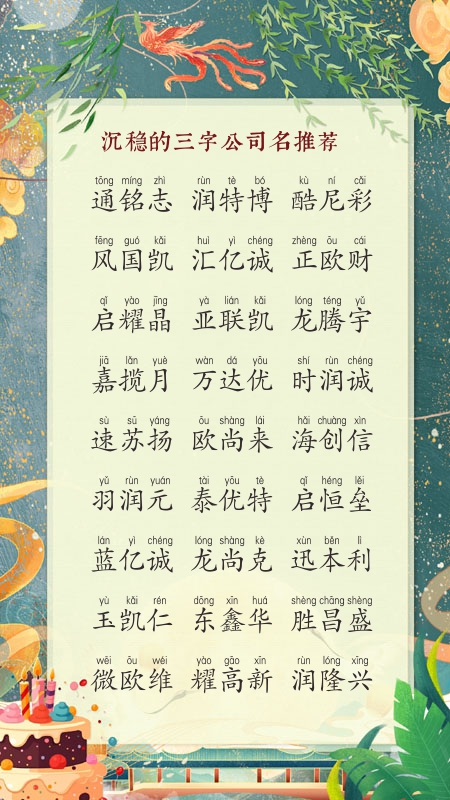 沉稳的三字公司名推荐
tōng míng zhì rùn tè bó kù ní cǎi
通铭志 润特博 酷尼彩
fēng guó kǎi huì yì chéng zhèng ōu cái
风国凯 汇亿诚 正欧财
qǐ yào jīng yà lián kǎi lóng téng yǔ
启耀晶 亚联凯 龙腾宇
jiā lǎn yuè wàn dá yōu shí rùn chéng
嘉揽月 万达优 时润诚
sù sū yáng ōu shàng lái hǎi chuàng xìn
速苏扬 欧尚来 海创信
yǔ rùn yuán tài yōu tè qǐ héng lěi
羽润元 泰优特 启恒垒
lán yì chéng lóng shàng kè xùn běn lì
蓝亿诚 龙尚克 迅本利
yù kǎi rén dōng xīn huá shèng chāng shèng
玉凯仁 东鑫华 胜昌盛
wēi ōu wéi yào gāo xīn rùn lóng xīng
微欧维 耀高新 润隆兴